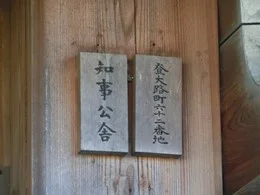 登大路町六十二番地
知事公舎